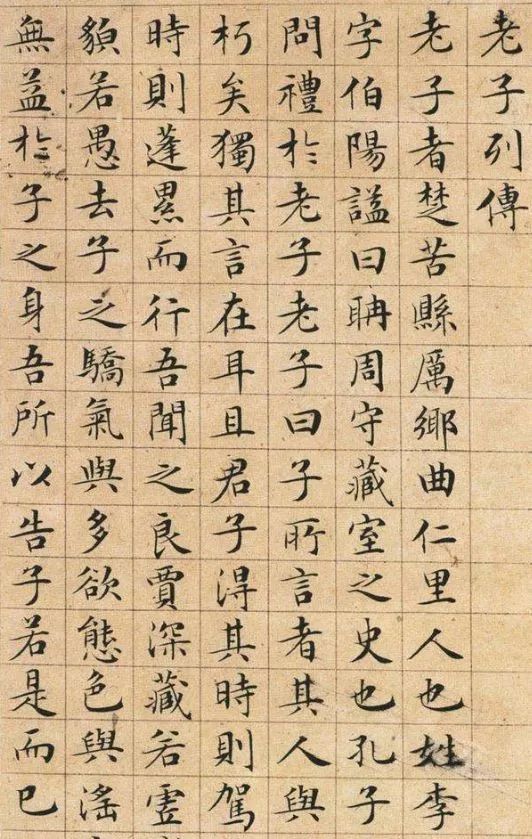 老子列傳
老子者楚苦縣厲鄉曲仁里人也姓李
字伯陽謚曰聃周守藏室之史也孔子
問禮於老子老子曰子所言者其人與
朽矣獨其言在耳且君子得其時則駕
時則蓬累而行吾聞之良賈深藏若虛
貌若愚去子之驕氣與多欲態色與淫
無益於子之身吾所以告子若是而已